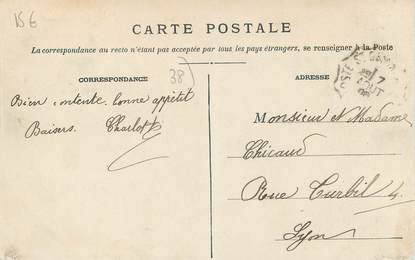 15€
CARTE POSTALE
La correspondance au recto n'étant pas acceptée par tous les pays étrangers, se renseigner à la Poste
CORRESPONDANCE
38
ADRESSE
Bien contente. bonne appétit
Baisers. Charlotte
Monsieur et Madame
Chicaud
Rue Curbil 4.
Lyon
7
AOUT